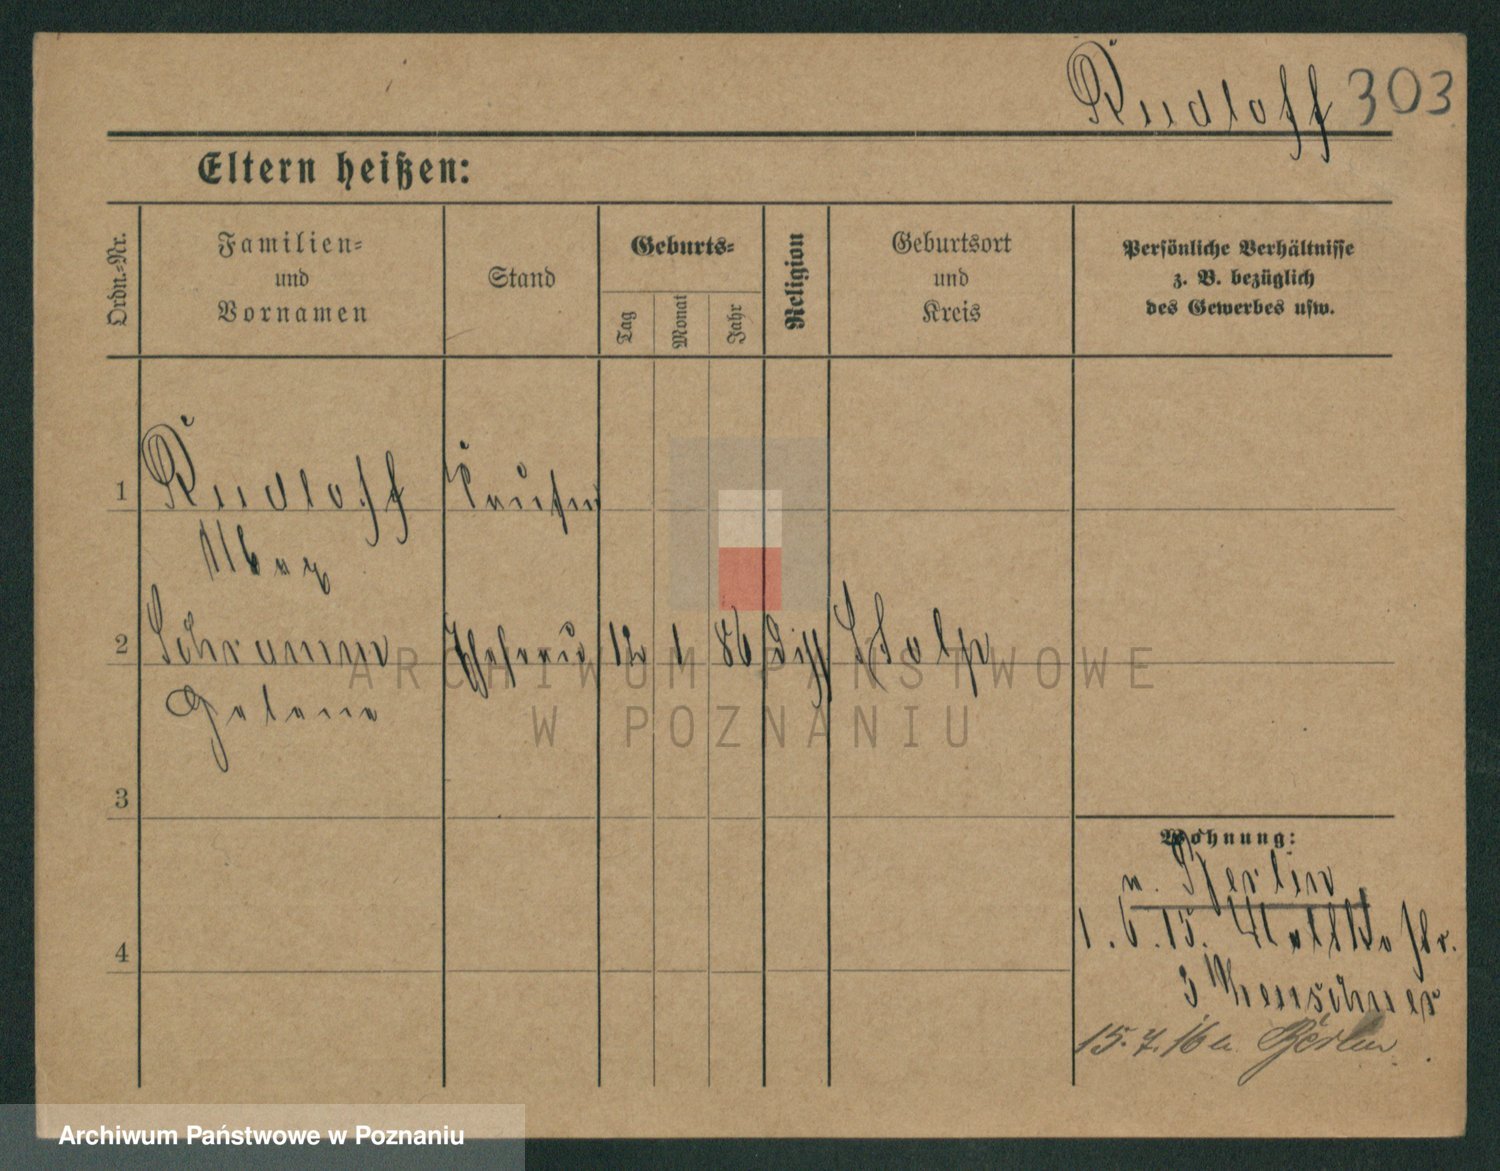 Rudloff 303
Eltern heißen:
Ordn.=Nr.
Familien=
und
Vornamen
Stand
Geburts=
Tag
Monat
Jahr
Religion
Geburtsort
und
Kreis
Persönliche Verhältnisse
z. B. bezüglich
des Gewerbes usw.
1 Rudloff
Max
2 Schramm Ehefrau 12 1 86 diss Stolp
Helene
3
4
Wohnung:
n. Berlin
1. 6. 15.
15. 7. 16 n. Berlin
ARCHIWUM PAŃSTWOWE
W POZNANIU
Archiwum Państwowe w Poznaniu